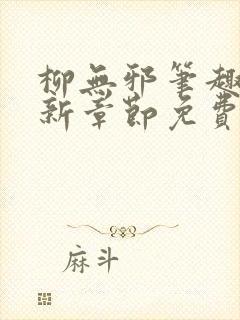 柳無邪筆趣
新章節免費
麻斗